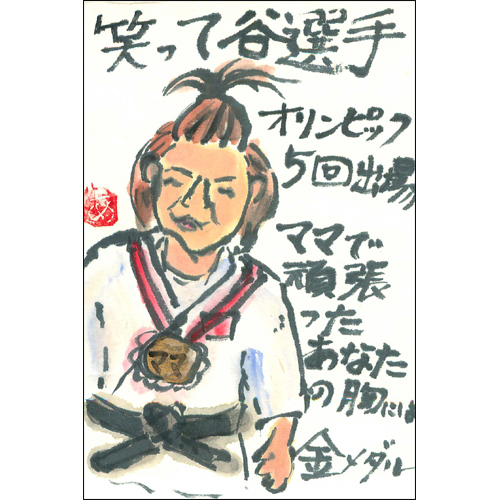 笑って谷選手
オリンピック
5回出場
ママで
頑張
った
あなた
の胸には
金メダル
ママ